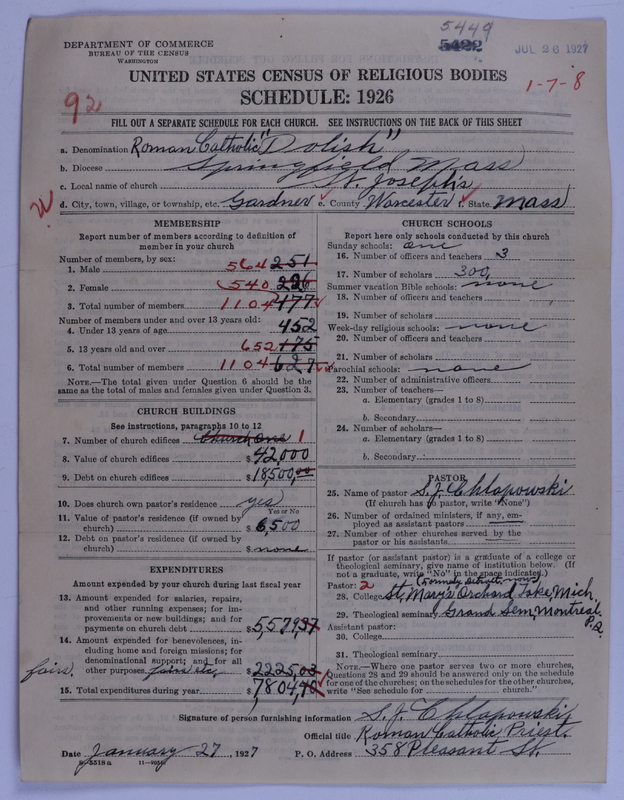 5449
DEPARTMENT OF COMMERCE
BUREAU OF THE CENSUS
WASHINGTON
5422
JUL 26 1927
UNITED STATES CENSUS OF RELIGIOUS BODIES
1-7-8
SCHEDULE: 1926
92
FILL OUT A SEPARATE SCHEDULE FOR EACH CHURCH. SEE INSTRUCTIONS ON THE BACK OF THIS SHEET
a. Denomination Roman Catholic "Polish"
b. Diocese Springfield Mass
c. Local name of church St. Joseph's
d. City, town, village, or township, etc. Gardner e. County Worcester f. State Mass
MEMBERSHIP
Report number of members according to definition of
member in your church
Number of members, by sex:
1. Male 564 251
2. Female 540 226
3. Total number of members 1104 477
Number of members under and over 13 years old:
4. Under 13 years of age 452
5. 13 years old and over 652 175
6. Total number of members 1104 627
NOTE.—The total given under Question 6 should be the
same as the total of males and females given under Question 3.
CHURCH BUILDINGS
See instructions, paragraphs 10 to 12
7. Number of church edifices Church One 1
8. Value of church edifices $ 42,000
9. Debt on church edifices $ 18500,00
10. Does church own pastor's residence yes
Yes or No
11. Value of pastor's residence (if owned by
church) $ 6,500
12. Debt on pastor's residence (if owned by
church) $ none
EXPENDITURES
Amount expended by your church during last fiscal year
13. Amount expended for salaries, repairs,
and other running expenses; for im-
provements or new buildings; and for
payments on church debt $ 5,579,37
14. Amount expended for benevolences, in-
cluding home and foreign missions; for
denominational support; and for all
other purposes fairs etc. $ 2225,03
fairs.
15. Total expenditures during year $ 7804,40
CHURCH SCHOOLS
Report here only schools conducted by this church
Sunday schools: one
16. Number of officers and teachers 3
17. Number of scholars 300
Summer vacation Bible schools: none
18. Number of officers and teachers
19. Number of scholars
Week-day religious schools: none
20. Number of officers and teachers
21. Number of scholars
Parochial schools: none
22. Number of administrative officers
23. Number of teachers—
a. Elementary (grades 1 to 8)
b. Secondary
24. Number of scholars—
a. Elementary (grades 1 to 8)
b. Secondary
PASTOR
25. Name of pastor S. J. Chlapowski
(If church has no pastor, write "None")
26. Number of ordained ministers, if any, em-
ployed as assistant pastors
27. Number of other churches served by the
pastor or his assistants
If pastor (or assistant pastor) is a graduate of a college or
theological seminary, give name of institution below. (If
not a graduate, write "No" in the space indicated.)
Pastor: 2
28. College St. Mary's Orchard Lake, Mich.
29. Theological seminary Grand Sem, Montreal P.Q.
Assistant pastor:
30. College
31. Theological seminary
NOTE.—Where one pastor serves two or more churches,
Questions 28 and 29 should be answered only on the schedule
for one of the churches; on the schedules for the other churches,
write "See schedule for church."
Signature of person furnishing information S. J. Chlapowski
Official title Roman Catholic Priest
Date January 27, 1927
P. O. Address 358 Pleasant St.
8-5518 a